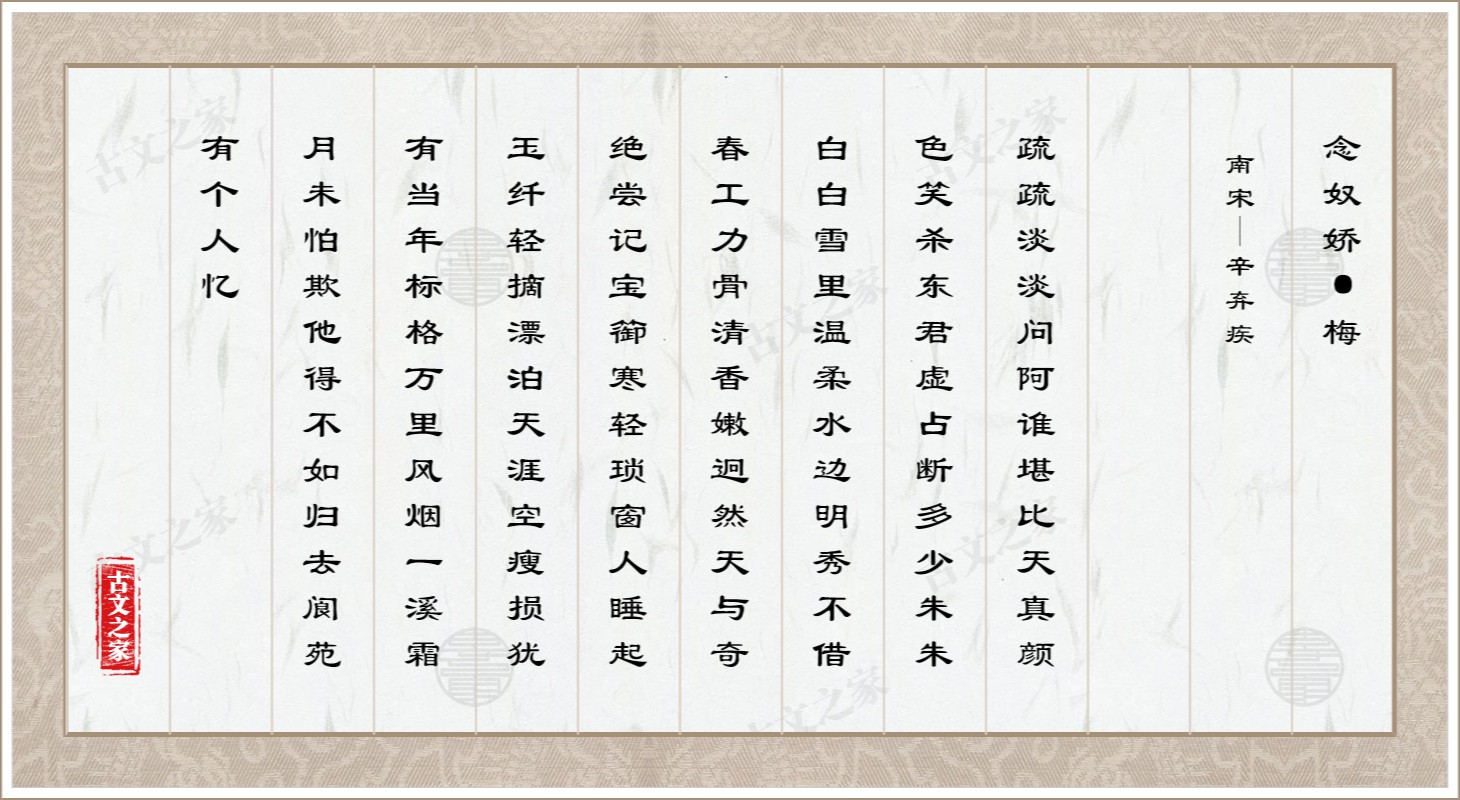 念奴娇●梅
南宋—辛弃疾
疏疏淡淡问阿谁堪比天真颜
色笑杀东君虚占断多少朱朱
白白雪里温柔水边明秀不借
春工力骨清香嫩迥然天与奇
绝尝记宝篽寒轻琐窗人睡起
玉纤轻摘漂泊天涯空瘦损犹
有当年标格万里风烟一溪霜
月未怕欺他得不如归去阆苑
有个人忆
古文之家